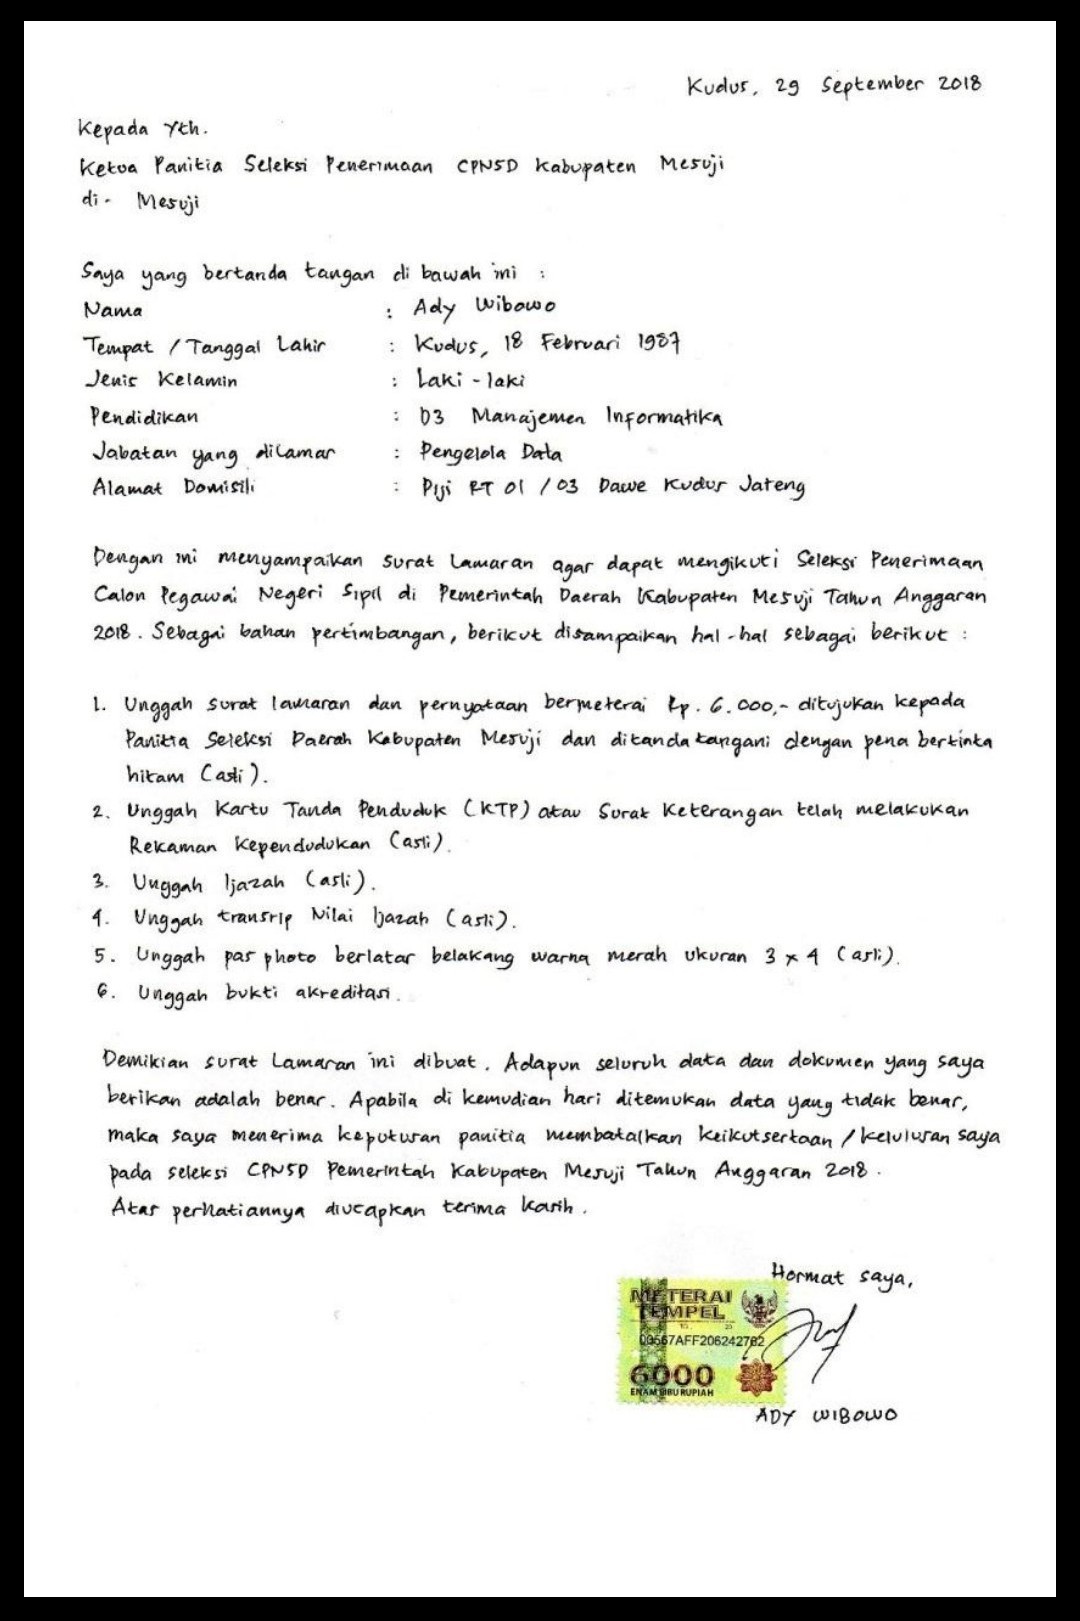 Kudus, 29 September 2018
Kepada Yth.
Ketua Panitia Seleksi Penerimaan CPNSD Kabupaten Mesuji
di - Mesuji
Saya yang bertanda tangan di bawah ini :
Nama : Ady Wibowo
Tempat / Tanggal Lahir : Kudus, 18 Februari 1987
Jenis Kelamin : Laki - laki
Pendidikan : D3 Manajemen Informatika
Jabatan yang dilamar : Pengelola Data
Alamat Domisili : Piji RT 01 / 03 Dawe Kudus Jateng
Dengan ini menyampaikan surat lamaran agar dapat mengikuti Seleksi Penerimaan
Calon Pegawai Negeri Sipil di Pemerintah Daerah Kabupaten Mesuji Tahun Anggaran
2018. Sebagai bahan pertimbangan, berikut disampaikan hal-hal sebagai berikut :
1. Unggah surat lamaran dan pernyataan bermeterai Rp. 6.000,- ditujukan kepada
Panitia Seleksi Daerah Kabupaten Mesuji dan ditandatangani dengan pena bertinta
hitam (asli).
2. Unggah Kartu Tanda Penduduk (KTP) atau Surat Keterangan telah melakukan
Rekaman Kependudukan (asli).
3. Unggah Ijazah (asli).
4. Unggah transrip Nilai Ijazah (asli).
5. Unggah pas photo berlatar belakang warna merah ukuran 3 x 4 (asli).
6. Unggah bukti akreditasi.
Demikian surat lamaran ini dibuat. Adapun seluruh data dan dokumen yang saya
berikan adalah benar. Apabila di kemudian hari ditemukan data yang tidak benar,
maka saya menerima keputusan panitia membatalkan keikutsertaan / kelulusan saya
pada seleksi CPNSD Pemerintah Kabupaten Mesuji Tahun Anggaran 2018.
Atas perhatiannya diucapkan terima kasih.
Hormat saya,
METERAI
TEMPEL
00567AFF206242762
6000
ENAM RIBU RUPIAH
ADY WIBOWO